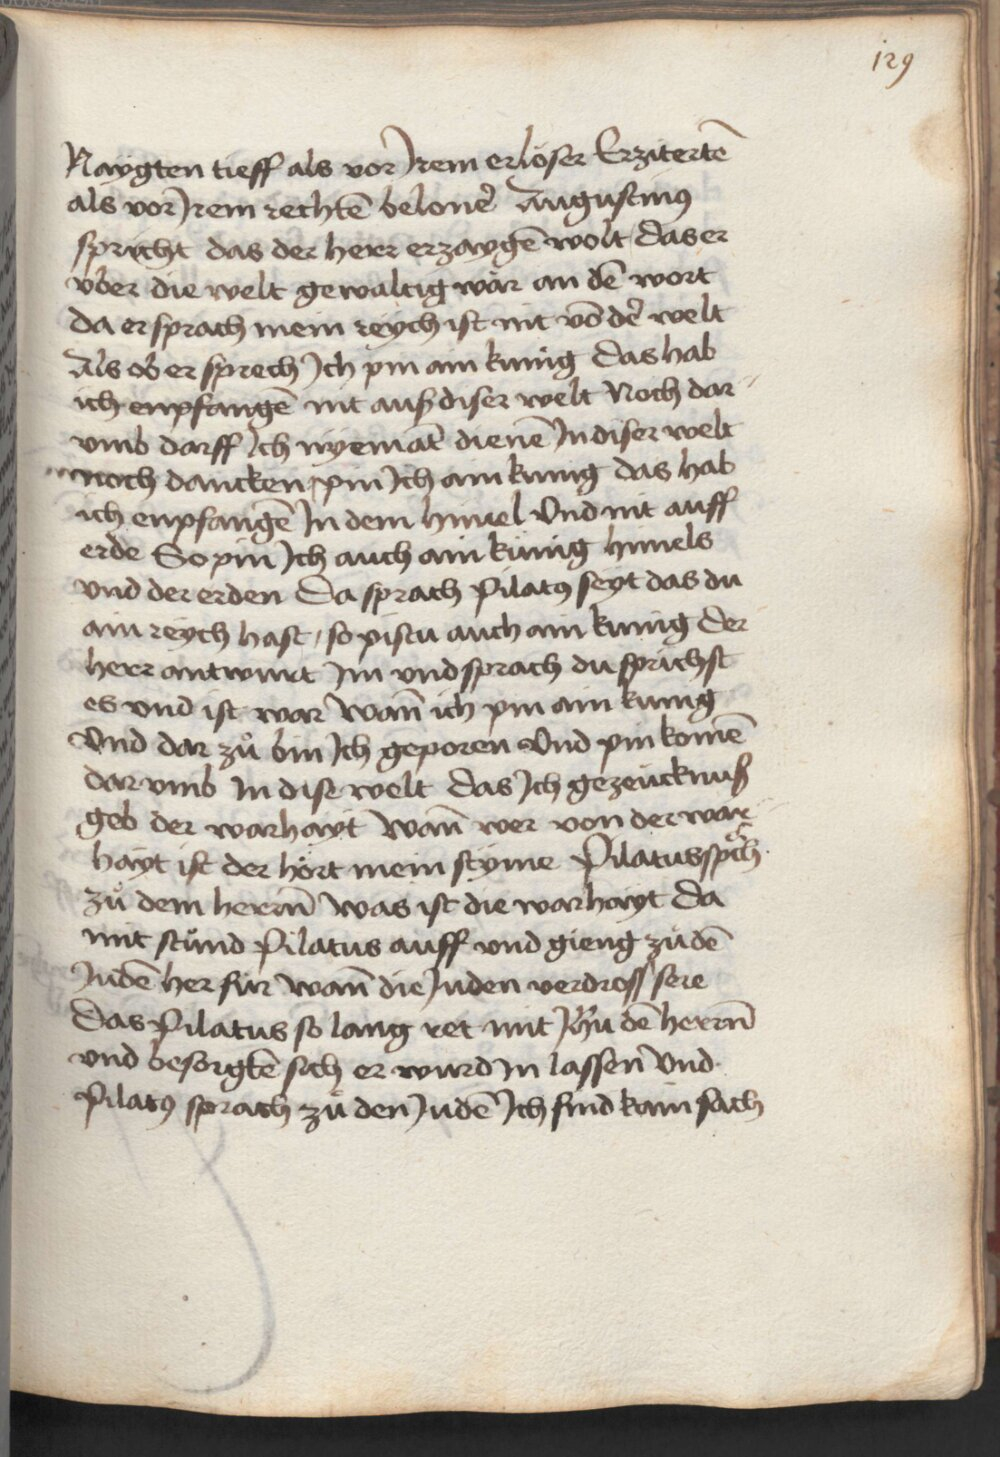 129
Naygten tieff als vor Irem erlöser Erzitertē
als vor Irem rechtē belonēr Augustinꝰ
spricht das der herr erzaygē wolt das er
vber die welt gewaltig wär an dē wort
da er sprach mein reych ist nit vō dēr welt
Als ob er sprech Ich pin ain kunig das hab
ich enpfangē nit auß diser welt Noch dar
vmb darff Ich nyemāt dienē In diser welt
noch dancken pin Ich ain kunig das hab
ich enpfangē In dem himel Vnd nit auff
erde So pin Ich auch ain künig himels
vnd der erden Da sprach Pilatꝰ seyt das du
ain reych hast / so pistu auch ain kunig der
herr antwurt Im vnd sprach du sprichst
es vnd ist war Wan̄ ich pin ain kunig
Vnd dar zů bin Ich geporen Vnd pin komē
dar vmb In dise welt das Ich gezeucknuß
geb der warhayt Wan̄ wer von der war
hayt ist der hört mein styme Pilatus spch
zů dem herrn̄ Was ist die warhayt Da
mit stůnd Pilatus auff vnd gieng zů dē
Judē her für Wan̄ die Juden verdross sere
Das Pilatus so lang ret mit Jhū dē herrn̄
vnd besorgtē sich er wurd In lassen Vnd
Pilatꝰ sprach zů den Judē Ich find kain sach